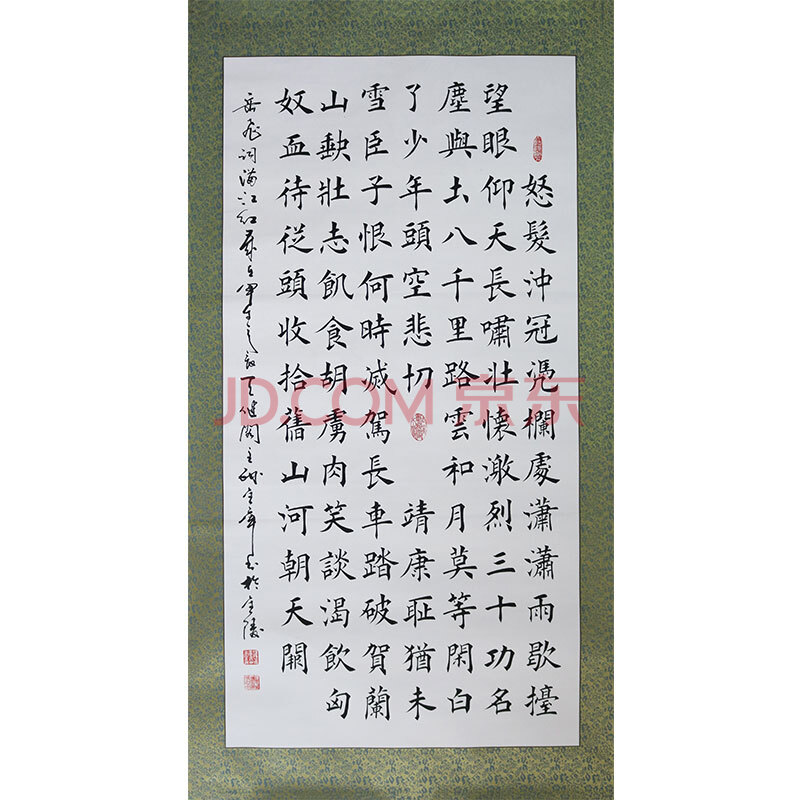 怒髮沖冠凴欄處瀟瀟雨歇擡
望眼仰天長嘯壯懷激烈三十功名
塵與土八千里路雲和月莫等閑白
了少年頭空悲切
靖康耻猶未
雪臣子恨何時滅駕長車踏破賀蘭
山缺壯志飢食胡虜肉笑談渴飲匈
奴血待從頭收拾舊山河朝天闕
岳飛詞滿江紅歲在甲午之秋天健閣主書於金陵
JD.COM 京东